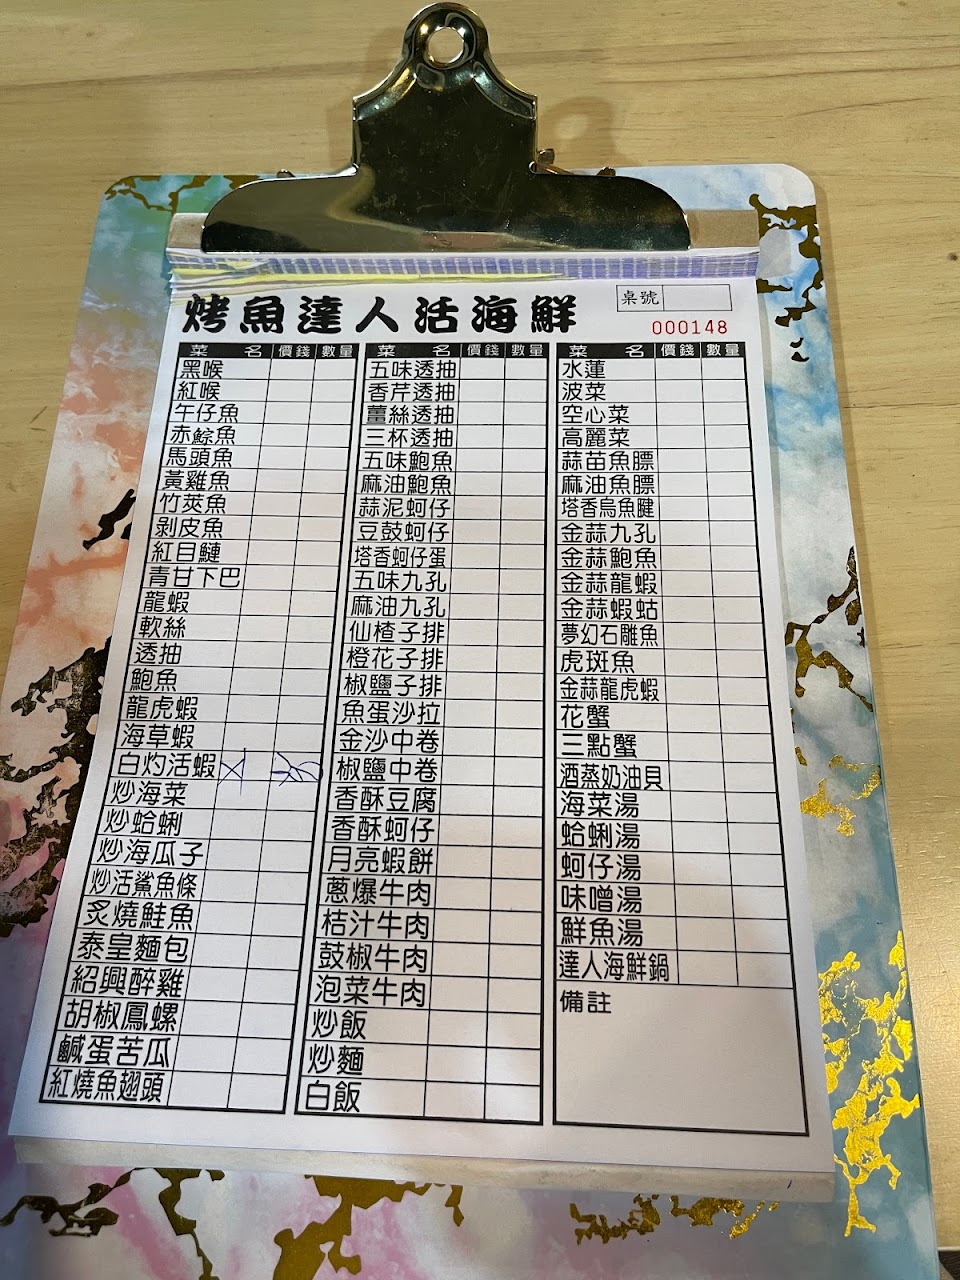 烤魚達人活海鮮
桌號
000148
菜名 價錢 數量
黑喉
紅喉
午仔魚
赤鯮魚
馬頭魚
黃雞魚
竹莢魚
剝皮魚
紅目鰱
青甘下巴
龍蝦
軟絲
透抽
鮑魚
龍虎蝦
海草蝦
白灼活蝦
炒海菜
炒蛤蜊
炒海瓜子
炒活鯊魚條
炙燒鮭魚
泰皇麵包
紹興醉雞
胡椒鳳螺
鹹蛋苦瓜
紅燒魚翅頭
菜名 價錢 數量
五味透抽
香芹透抽
薑絲透抽
三杯透抽
五味鮑魚
麻油鮑魚
蒜泥蚵仔
豆鼓蚵仔
塔香蚵仔蛋
五味九孔
麻油九孔
仙楂子排
橙花子排
椒鹽子排
魚蛋沙拉
金沙中卷
椒鹽中卷
香酥豆腐
香酥蚵仔
月亮蝦餅
蔥爆牛肉
桔汁牛肉
鼓椒牛肉
泡菜牛肉
炒飯
炒麵
白飯
菜名 價錢 數量
水蓮
波菜
空心菜
高麗菜
蒜苗魚膘
麻油魚膘
塔香烏魚腱
金蒜九孔
金蒜鮑魚
金蒜龍蝦
金蒜蝦蛄
夢幻石雕魚
虎斑魚
金蒜龍虎蝦
花蟹
三點蟹
酒蒸奶油貝
海菜湯
蛤蜊湯
蚵仔湯
味噌湯
鮮魚湯
達人海鮮鍋
備註